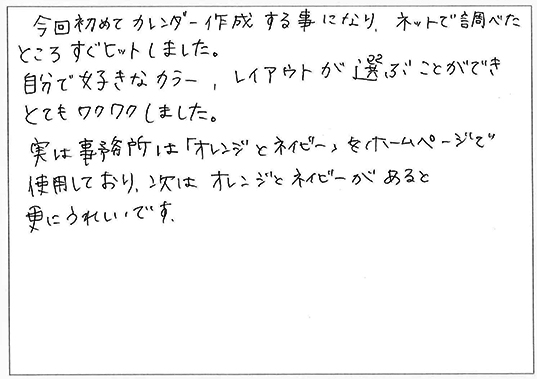 今回初めてカレンダー作成する事になり、ネットで調べた
ところすぐヒットしました。
自分で好きなカラー、レイアウトが選ぶことができ
とてもワクワクしました。
実は事務所は「オレンジとネイビー」をホームページで
使用しており、次はオレンジとネイビーがあると
更にうれしいです。